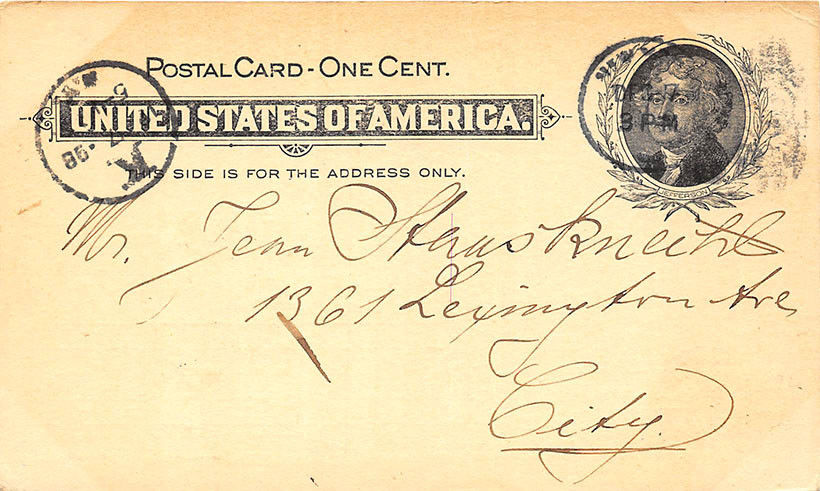 POSTAL CARD - ONE CENT.
UNITED STATES OF AMERICA.
THIS SIDE IS FOR THE ADDRESS ONLY.
JEFFERSON
3 PM
K
98
Mr. Jean
1361 Lexington Ave,
City.